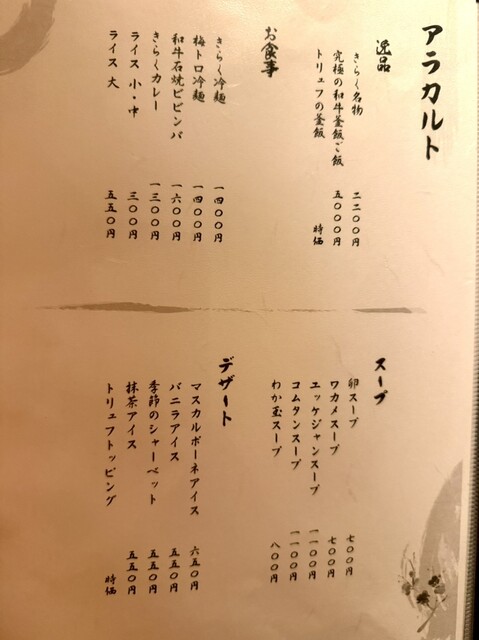 アラカルト
逸品
きらく名物 二二〇〇円
究極の和牛釜飯ご飯 五〇〇〇円
トリュフの釜飯 時価
お食事
きらく冷麺 一四〇〇円
梅トロ冷麺 一四〇〇円
和牛石焼ビビンバ 一六〇〇円
きらくカレー 一三〇〇円
ライス 小・中 三〇〇円
ライス 大 五五〇円
スープ
卵スープ 七〇〇円
ワカメスープ 七〇〇円
ユッケジャンスープ 一一〇〇円
コムタンスープ 一一〇〇円
わか玉スープ 八〇〇円
デザート
マスカルポーネアイス 六五〇円
バニラアイス 五五〇円
季節のシャーベット 五五〇円
抹茶アイス 五五〇円
トリュフトッピング 時価